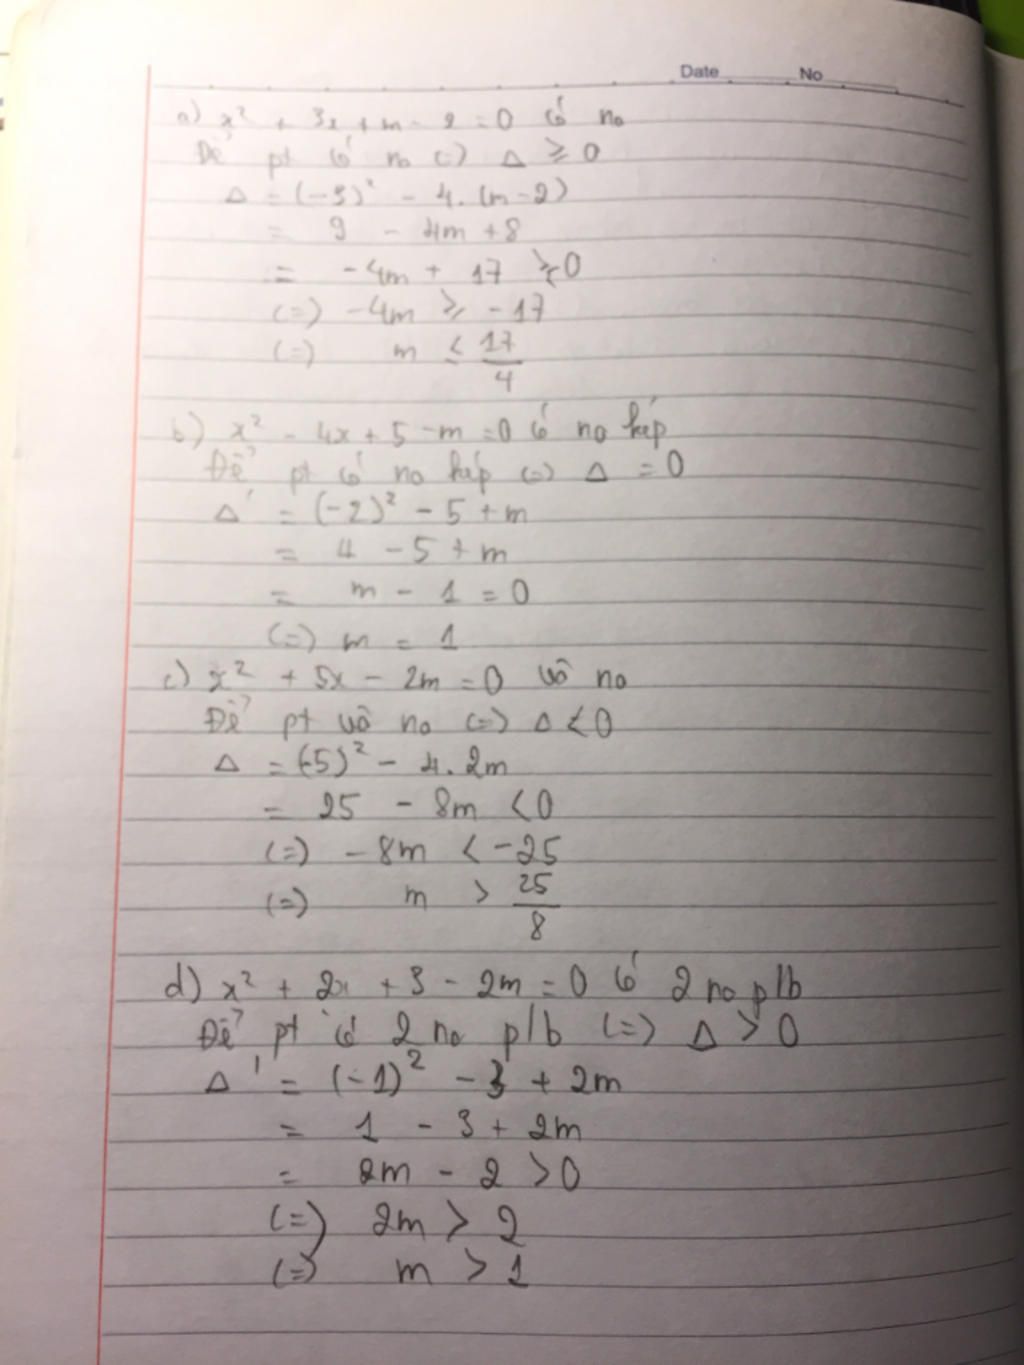 Date No
a) x² + 3x + m - 2 = 0 có no
Để pt có no (=) Δ ≥ 0
Δ = (-3)² - 4.(m-2)
= 9 - 4m + 8
= -4m + 17 ≥ 0
(=) -4m ≥ -17
(=) m ≤ 17/4
b) x² - 4x + 5 - m = 0 có no kép
Để pt có no kép (=) Δ = 0
Δ' = (-2)² - 5 + m
= 4 - 5 + m
= m - 1 = 0
(=) m = 1
c) x² + 5x - 2m = 0 vô no
Để pt vô no (=) Δ < 0
Δ = (-5)² - 4. 2m
= 25 - 8m < 0
(=) -8m < -25
(=) m > 25/8
d) x² + 2x + 3 - 2m = 0 có 2 no p/b
Để pt có 2 no p/b (=) Δ > 0
Δ' = (-1)² - 3 + 2m
= 1 - 3 + 2m
= 2m - 2 > 0
(=) 2m > 2
(=) m > 1